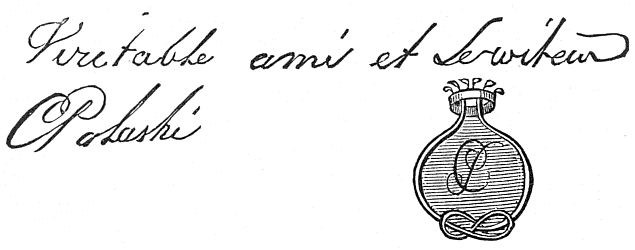 Viritable ami et Serviteur
CPolaski